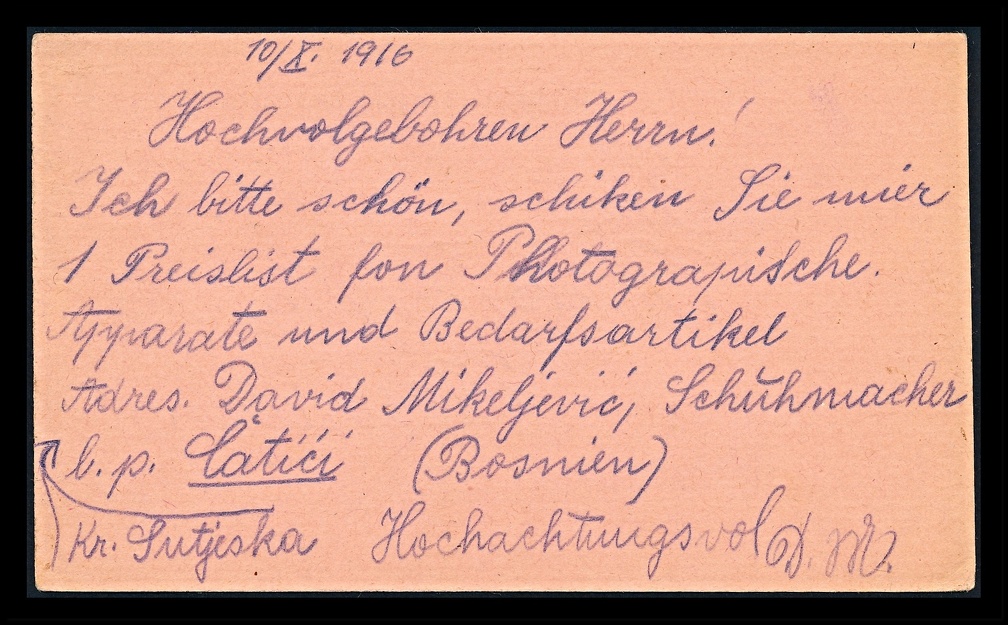 10/X. 1916
Hochvolgebohren Herrn!
Ich bitte schön, schiken Sie mier
1 Preislist fon Photograpische.
Apparate und Bedarfsartikel
Adres. David Mikeljević, Schŭhmacher
b. p. Ćatići (Bosnien)
Kr. Sutjeska Hochachtungsvol D. M.